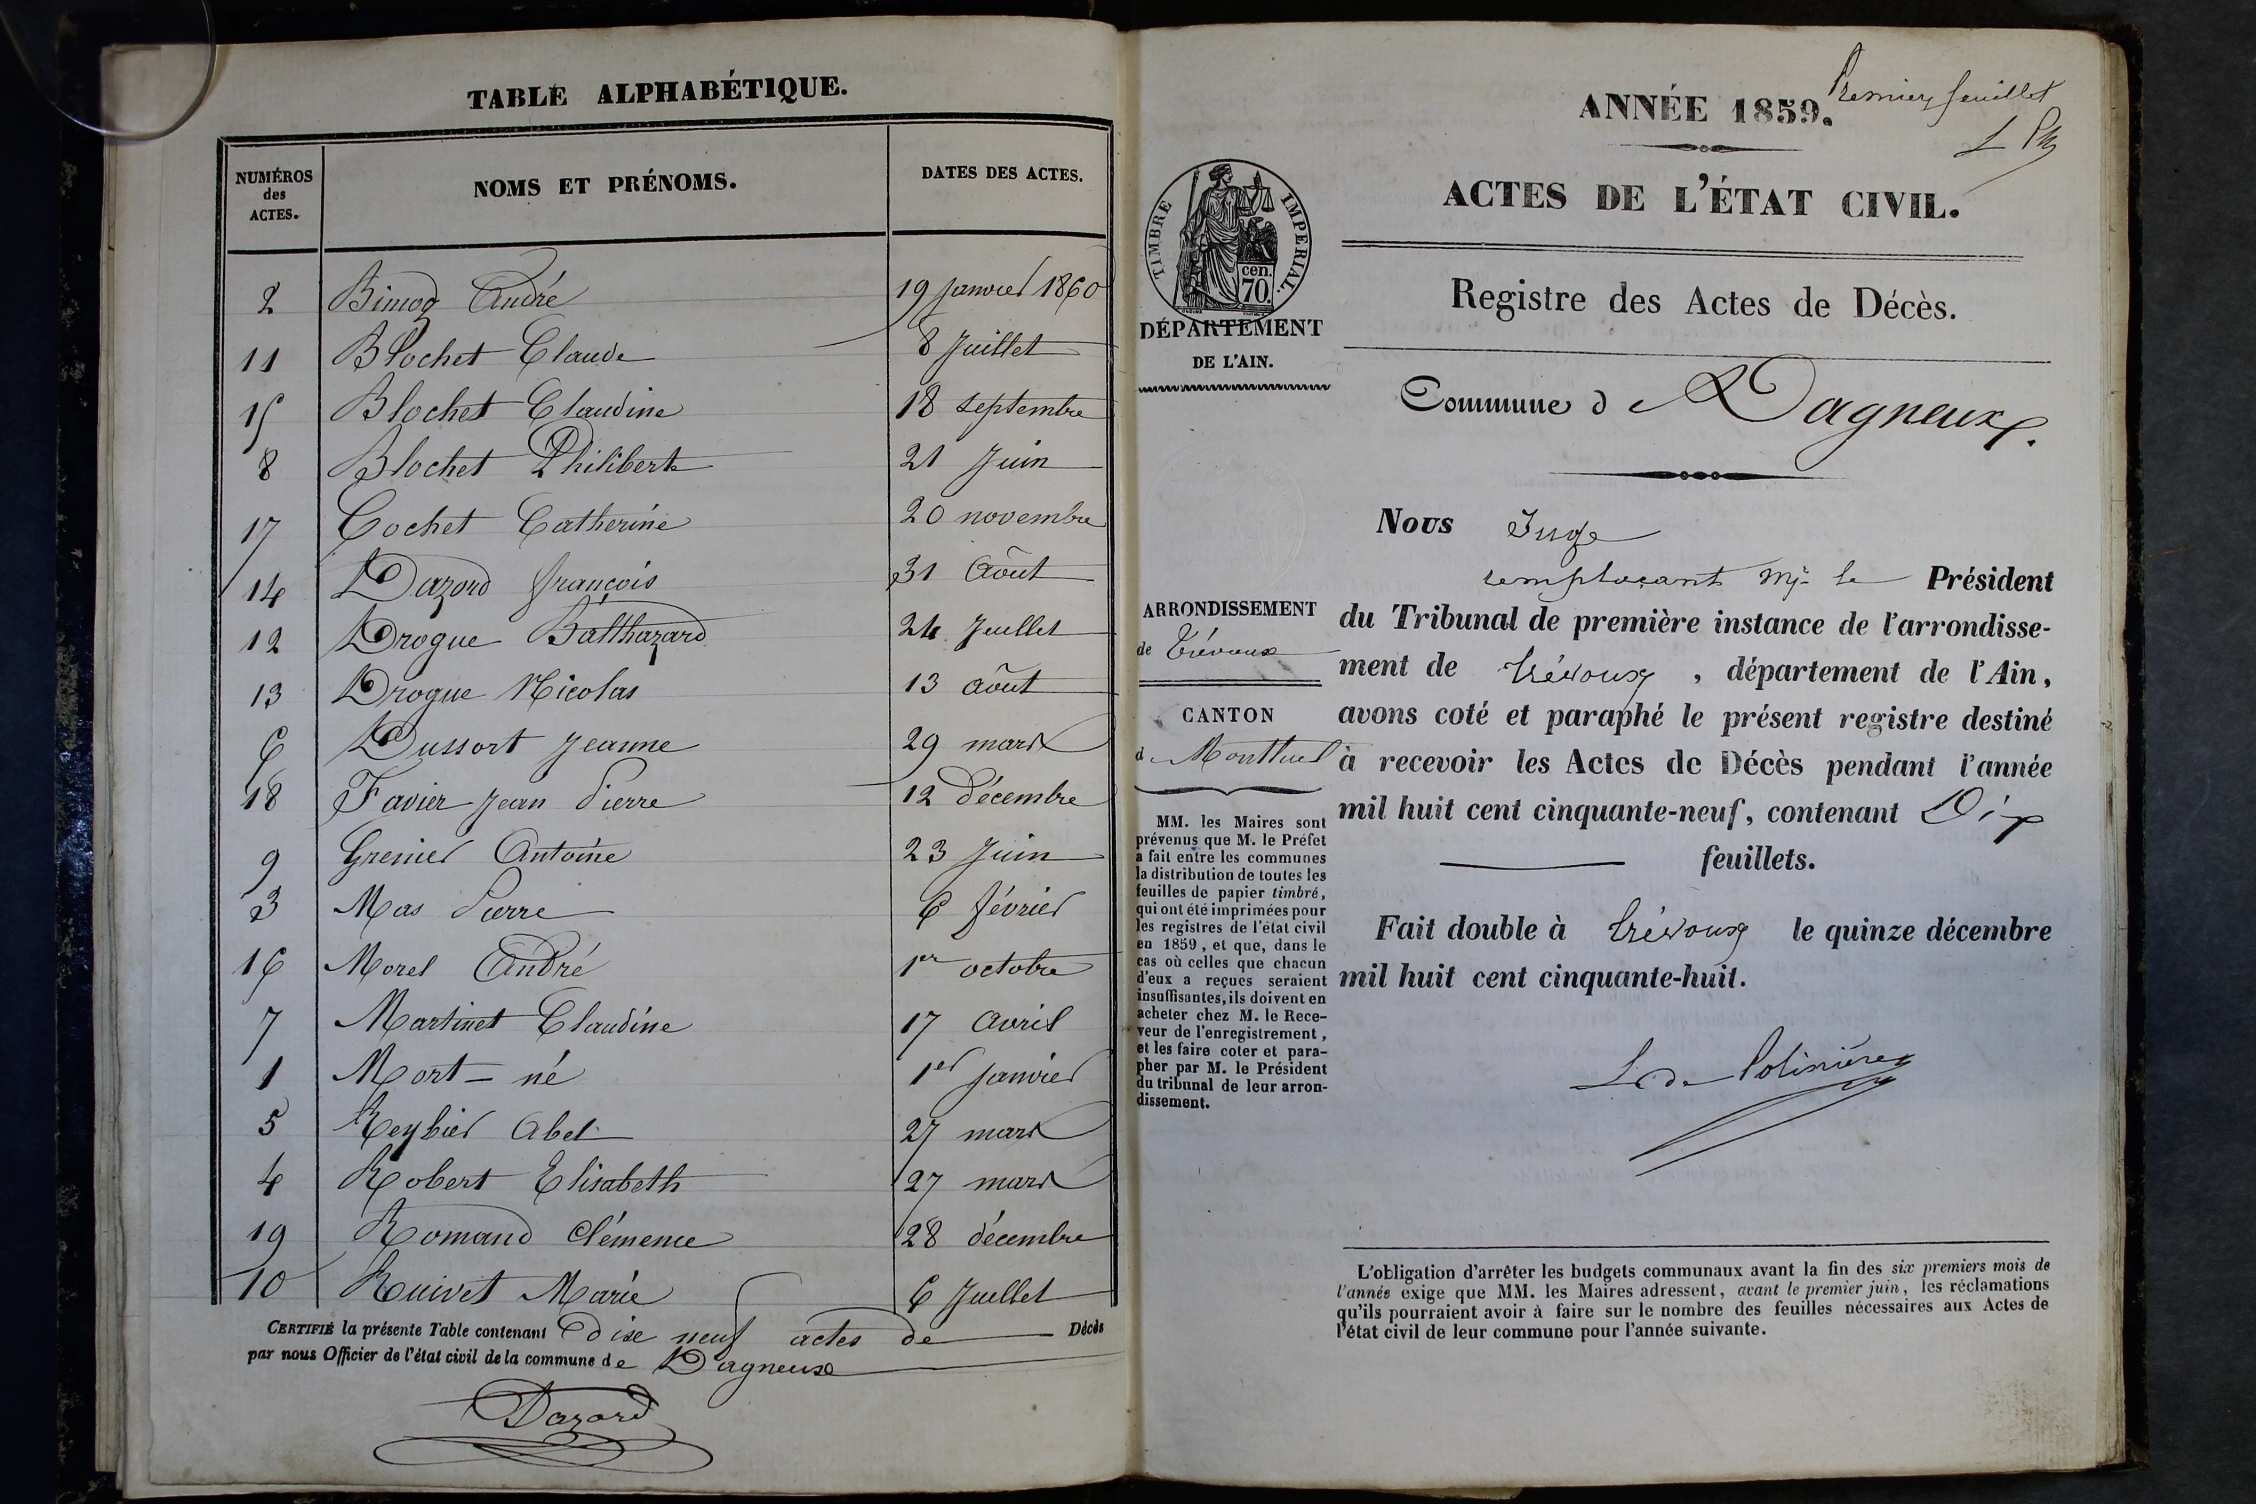 TABLE ALPHABÉTIQUE.
NUMÉROS des ACTES. NOMS ET PRÉNOMS. DATES DES ACTES.
2 Bimoz André 19 Janvier 1860
11 Blochet Claude 8 Juillet
15 Blochet Claudine 18 septembre
8 Blochet Philiberte 21 Juin
17 Cochet Catherine 20 novembre
14 Dazord françois 31 Août
12 Drogue Balthazard 24 Juillet
13 Drogue Nicolas 13 août
6 Dussort Jeanne 29 mars
18 Favier Jean Pierre 12 Décembre
9 Grenier Antoine 23 Juin
3 Mas Pierre 6 février
16 Morel André 1er octobre
7 Martinet Claudine 17 avril
1 Mort-né 1er Janvier
5 Reybier Abel 27 mars
4 Robert Elisabeth 27 mars
19 Romand Clémence 28 décembre
10 Ruivet Marie 6 Juillet
CERTIFIÉ la présente Table contenant dixe neuf actes de Décès
par nous Officier de l'état civil de la commune de Dagneux
Dazord
Premier feuillet
ANNÉE 1859.
ACTES DE L'ÉTAT CIVIL.
TIMBRE IMPERIAL.
cen.
70.
DÉPARTEMENT
DE L'AIN.
Registre des Actes de Décès.
Commune de Dagneux.
ARRONDISSEMENT
de Trévoux
CANTON
de Montluel
MM. les Maires sont
prévenus que M. le Préfet
a fait entre les communes
la distribution de toutes les
feuilles de papier timbré,
qui ont été imprimées pour
les registres de l'état civil
en 1859, et que, dans le
cas où celles que chacun
d'eux a reçues seraient
insuffisantes, ils doivent en
acheter chez M. le Rece-
veur de l'enregistrement,
et les faire coter et para-
pher par M. le Président
du tribunal de leur arron-
dissement.
Nous Juge
remplaçant Mr le Président
du Tribunal de première instance de l'arrondisse-
ment de Trévoux, département de l'Ain,
avons coté et paraphé le présent registre destiné
à recevoir les Actes de Décès pendant l'année
mil huit cent cinquante-neuf, contenant Dix
feuillets.
Fait double à Trévoux le quinze décembre
mil huit cent cinquante-huit.
L de Polinière
L'obligation d'arrêter les budgets communaux avant la fin des six premiers mois de
l'année exige que MM. les Maires adressent, avant le premier juin, les réclamations
qu'ils pourraient avoir à faire sur le nombre des feuilles nécessaires aux Actes de
l'état civil de leur commune pour l'année suivante.